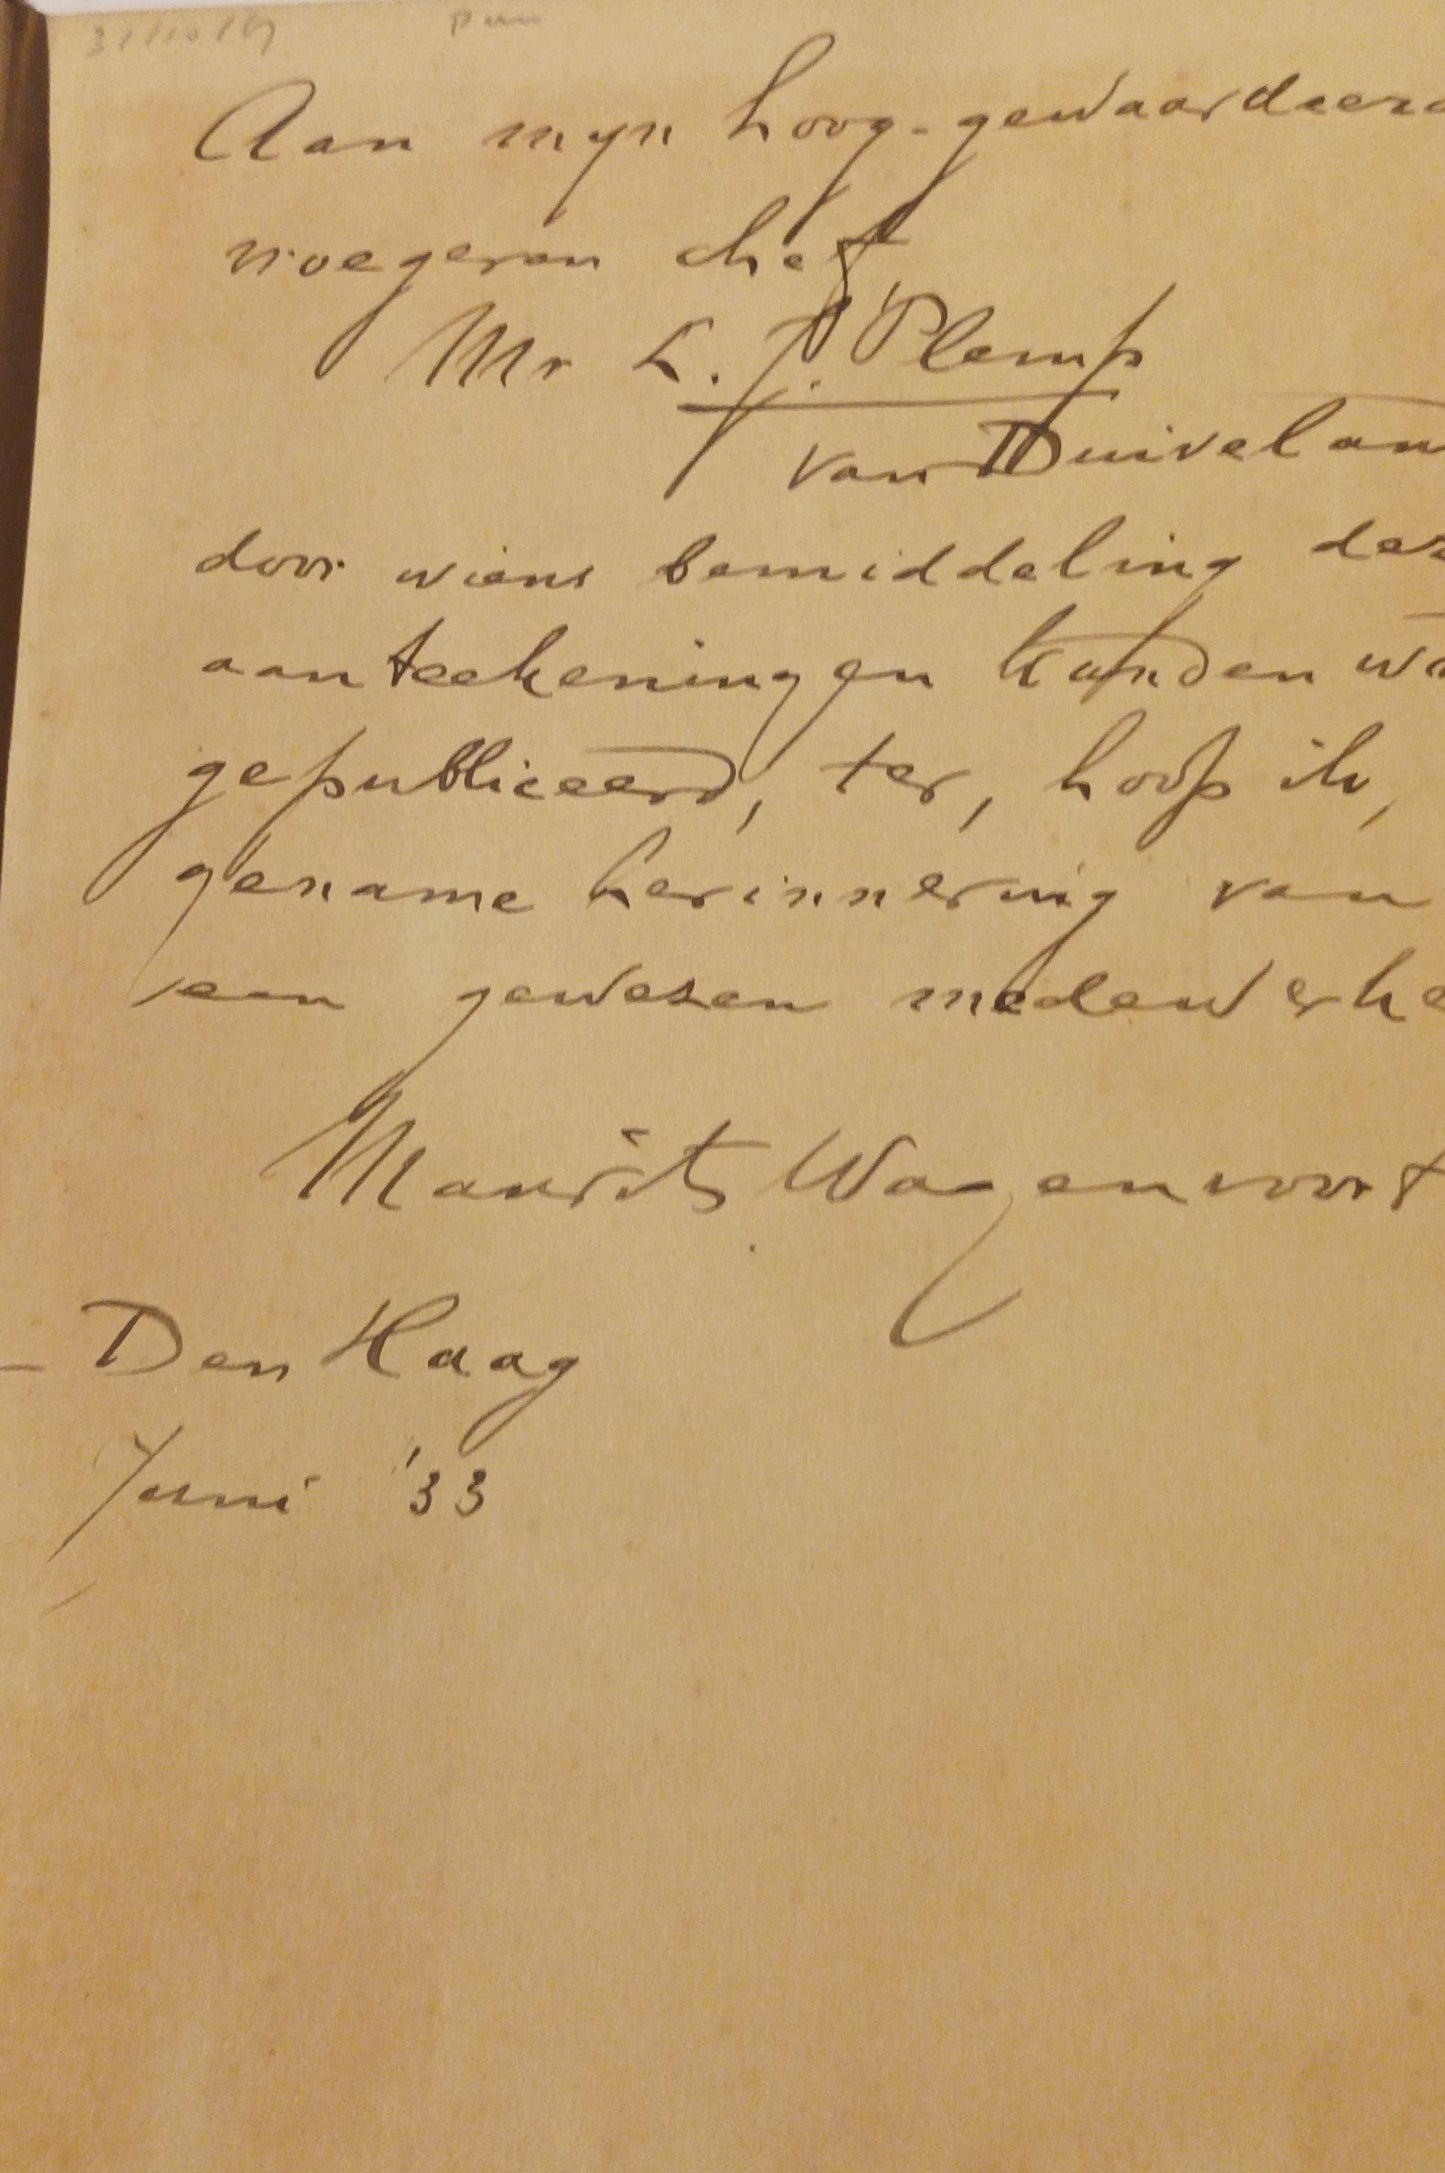 Aan myn hoog-gewaardeerd
vroegeren chef
Mr L. J. Plemp
van Duiveland
door wiens bemiddeling dez
aanteekeningen konden wo
gepubliceerd, ter, hoop ik,
gename herinnering van
een gewezen medewerke
Maurits Wagenvoort
Den Haag
Juni '33